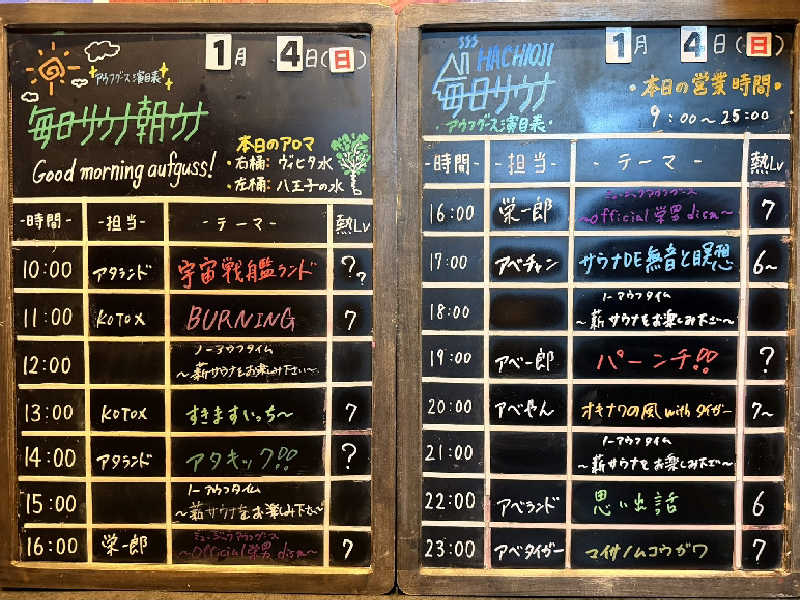 アウフグース演目表
1月 4日(日)
毎日サウナ朝ウナ
Good morning aufguss!
本日のアロマ
・右桶: ヴィヒタ水
・左桶: 八王子の水
-時間- -担当- -テーマ- 熱Lv
10:00 アタランド 宇宙戦艦ランド ??
11:00 KOTOX BURNING 7
12:00 ノーアウフタイム
〜薪サウナをお楽しみ下さい〜
13:00 KOTOX すきますいっち〜 7
14:00 アタランド アタキック!! ?
15:00 ノーアウフタイム
〜薪サウナをお楽しみ下さい〜
16:00 栄一郎 ミュージックアウフグース 7
〜Official栄男dism〜
HACHIOJI
1月 4日(日)
毎日サウナ
・アウフグース演目表・
・本日の営業時間・
9:00〜25:00
-時間- -担当- -テーマ- 熱Lv
16:00 栄一郎 ミュージックアウフグース 7
〜Official栄男dism〜
17:00 アベチャン サウナDE無音と瞑想 6〜
18:00 ノーアウフタイム
〜薪サウナをお楽しみ下さい〜
19:00 アベ一郎 パーンチ!! ?
20:00 アベやん オキナワの風withタイガー 7〜
21:00 ノーアウフタイム
〜薪サウナをお楽しみ下さい〜
22:00 アベランド 思い出話 6
23:00 アベタイガー マイサノムコウガワ 7